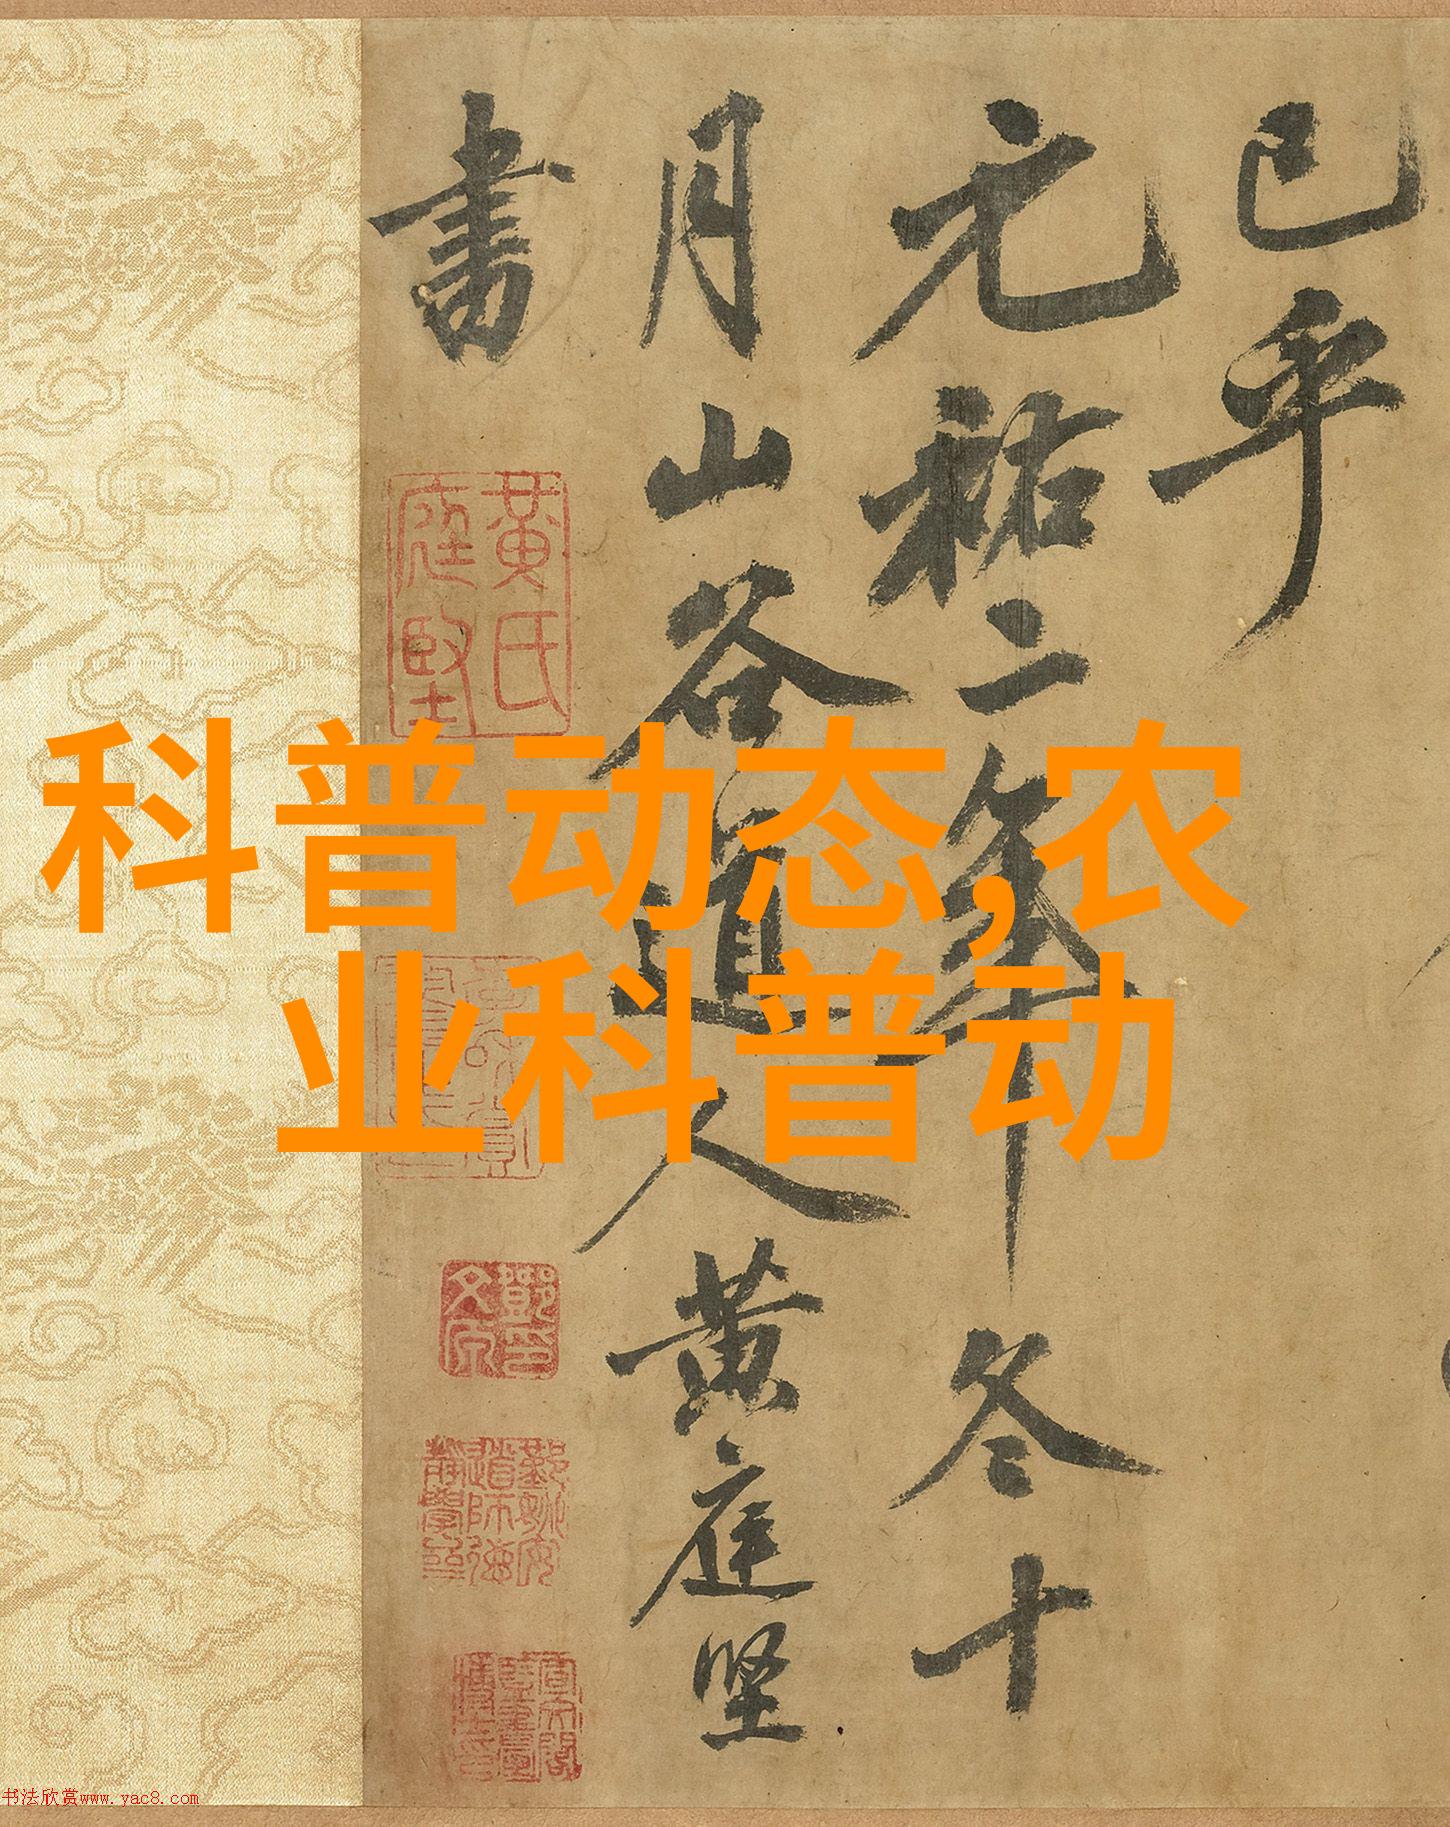 已乎
元祐二年冬十
月山谷道人黄庭坚
書
黄氏
庭堅
科普动态,农
业科普动
书法欣赏www.yac8.com